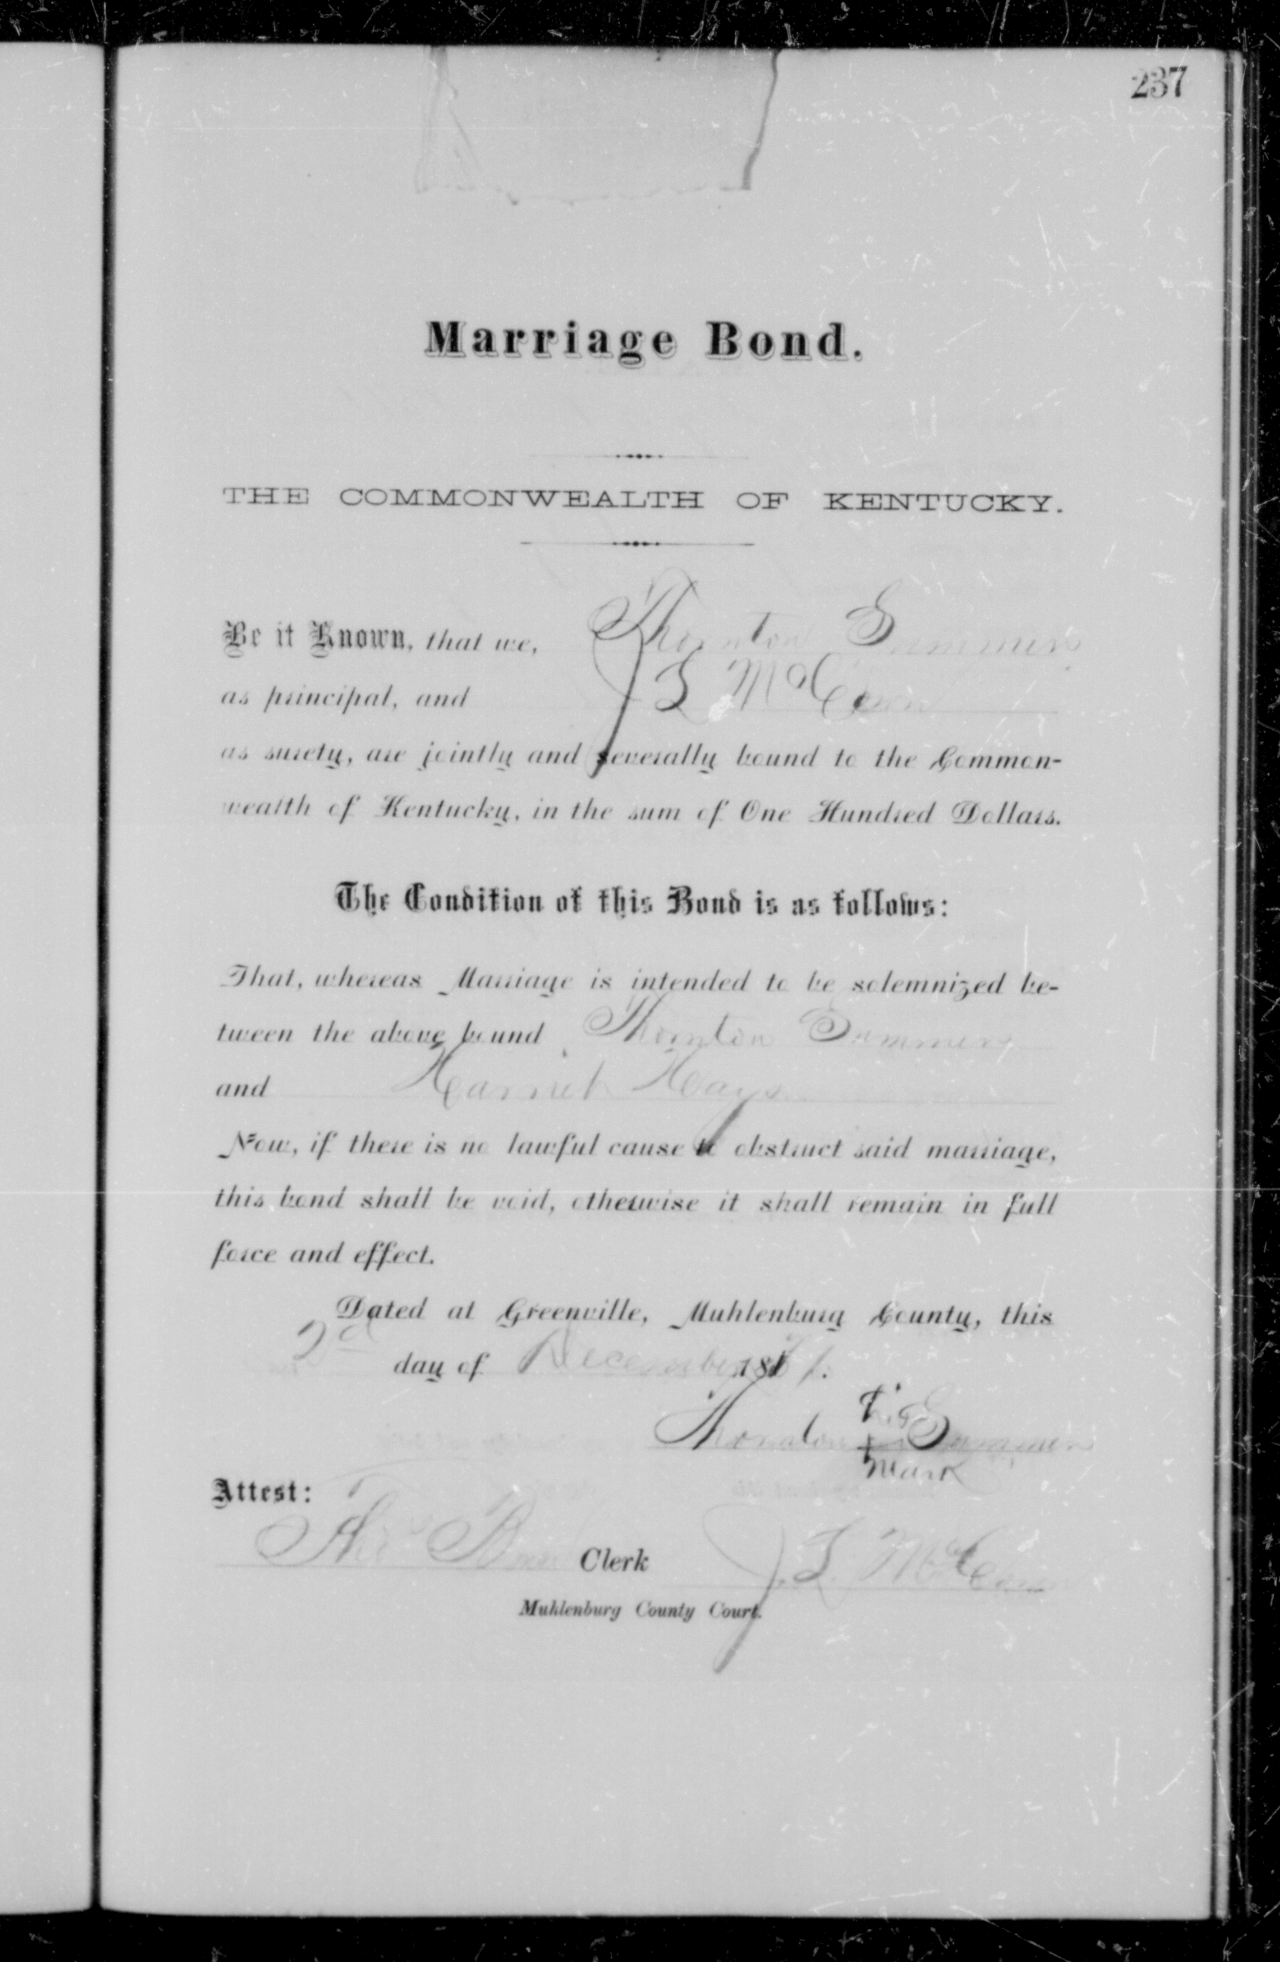 237
Marriage Bond.
THE COMMONWEALTH OF KENTUCKY.
Be it Known, that we, Thornton Summers
as principal, and J S
as surety, are jointly and severally bound to the Common-
wealth of Kentucky, in the sum of One Hundred Dollars.
The Condition of this Bond is as follows:
That, whereas Marriage is intended to be solemnized be-
tween the above bound Thornton Summers
and Harriet Hays
Now, if there is no lawful cause to obstruct said marriage,
this bond shall be void, otherwise it shall remain in full
force and effect.
Dated at Greenville, Muhlenburg County, this
2d day of December 187
Thornton his Summers
+
mark
Attest:
Clerk J S
Muhlenburg County Court.